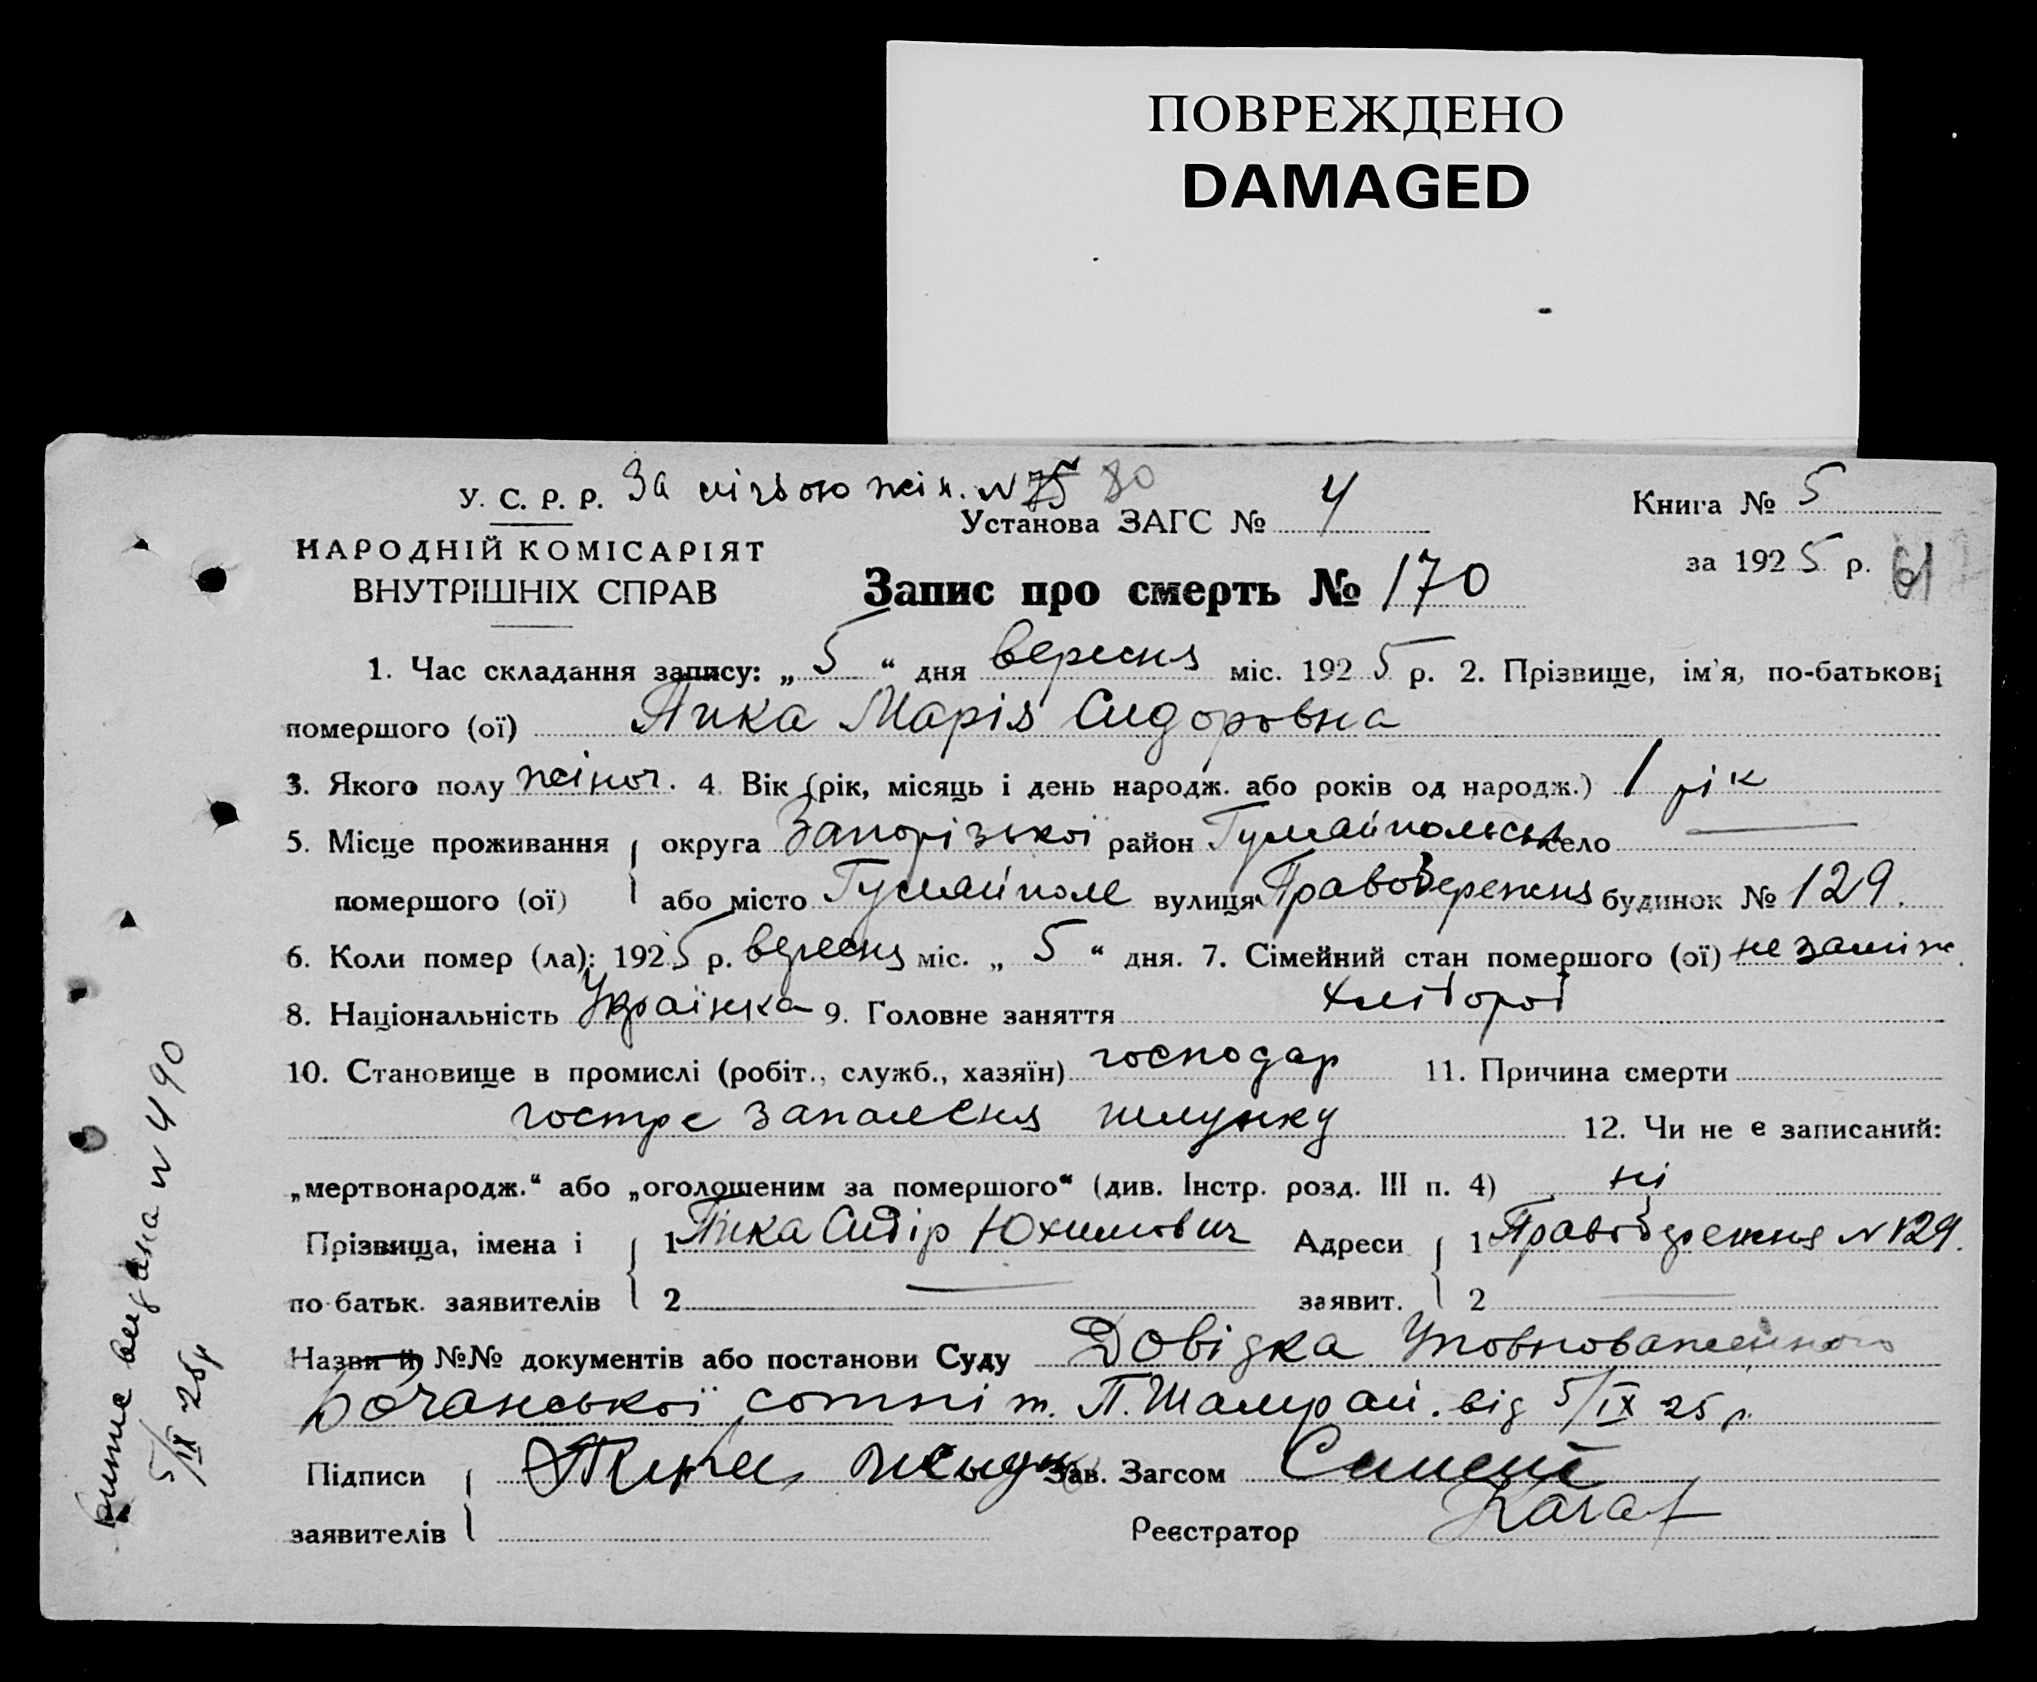 ПОВРЕЖДЕНО
DAMAGED
У. С. Р. Р. За лічбою жін. N 75 80
Установа ЗАГС № 4
Книга № 5
НАРОДНІЙ КОМІСАРІЯТ
ВНУТРІШНІХ СПРАВ
за 1925 р. 61
Запис про смерть № 170
1. Час складання запису: „ 5 “ дня вересня міс. 1925 р. 2. Прізвище, ім'я, по-батькові
помершого (ої) Пика Марія Сидоровна
3. Якого полу жіноч. 4. Вік (рік, місяць і день народж. або років од народж.) 1 рік
5. Місце проживання округа Запорізької район Гуляйпольськ село
помершого (ої) або місто Гуляйполе вулиця Правобережня будинок № 129.
6. Коли помер (ла): 1925 р. вересня міс. „ 5 “ дня. 7. Сімейний стан помершого (ої) не заміж.
8. Національність Українка 9. Головне заняття хлібороб
10. Становище в промислі (робіт., служб., хазяїн) господар 11. Причина смерти
гостре запалення шлунку 12. Чи не є записаний:
„мертвонародж.“ або „оголошеним за помершого“ (див. Інстр. розд. III п. 4) ні
Прізвища, імена і 1 Пика Сидір Юхимович Адреси 1 Правобережня N 129.
по-батьк. заявителів 2 заявит. 2
Назви й №№ документів або постанови Суду Довідка Уповноваженного
Бочанської сотні т. П. Шамрай. від 5/IX 25 р.
Підписи Пика Зав. Загсом
заявителів Реєстратор
Витяг видана N 490
5/IX 25р